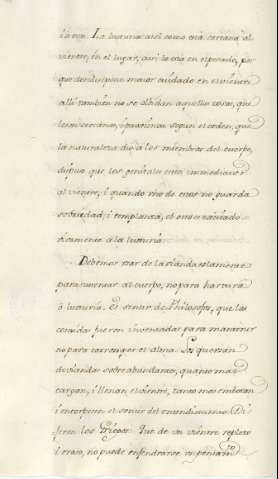 La luxuria assi como esta cercana al
vientre, en el lugar, assi lo esta en
que devemos poner mayor cuidado en
alli tambien no se olvidan aquellas cosas, que
le son cercanas, i proximas segun el orden, que
la naturaleza dio à los miembros del cuerpo,
dispuso que los genitales esten immediatos
al vientre; i quando este no guarda
sobriedad, i templanza, el otro
à la luxuria.
Debemos usar de la vianda solamente
para sustentar al cuerpo, no para hartura
ò luxuria. Es sentir de Philosofos, que las
comidas fueron inventadas para mantener
no para corromper el alma. Los que usan
de viandas sobreabundantes, quanto mas
cargan, i llenan el vientre, tanto mas embotan
i entorpecen el sentir del entendimiento. Di-
jeron los Griegos: Que de un vientre repleto
i craso, no puede engendrarse un pensamto